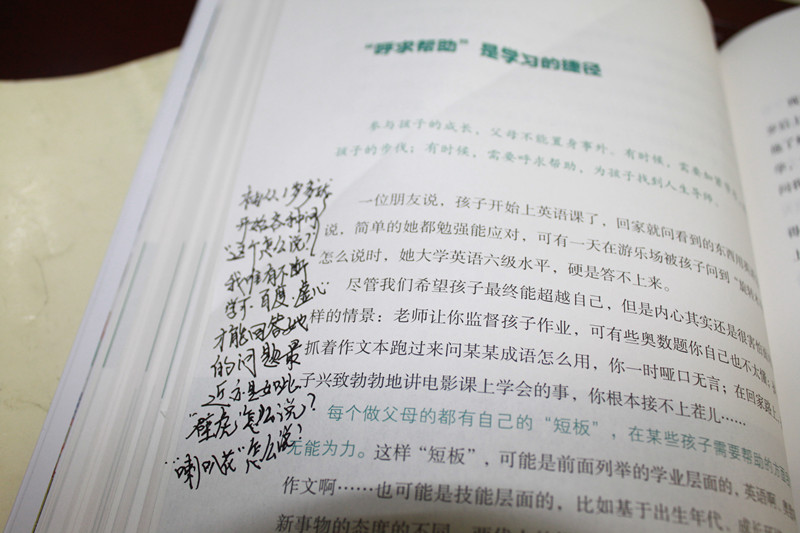 “呼求帮助”是学习的捷径
参与孩子的成长，父母不能置身事外。有时候，需要如影
孩子的步伐；有时候，需要呼求帮助，为孩子找到人生导师。
一位朋友说，孩子开始上英语课了，回家就问看到的东西用英语
说，简单的她都勉强能应对，可有一天在游乐场被孩子问到“旋转木
怎么说时，她大学英语六级水平，硬是答不上来。
尽管我们希望孩子最终能超越自己，但是内心其实还是很害怕
样的情景：老师让你监督孩子作业，可有些奥数题你自己也不太懂；
抓着作文本跑过来问某某成语怎么用，你一时哑口无言；在回家路上
子兴致勃勃地讲电影课上学会的事，你根本接不上茬儿……
每个做父母的都有自己的“短板”，在某些孩子需要帮助的方面
无能为力。这样“短板”，可能是前面列举的学业层面的，英语啊、奥
作文啊……也可能是技能层面的，比如基于出生年代、成长环
新事物的态度的不同，两代人
从1岁多就
开始各种问
“这个怎么说？”
我唯有不断
学习、百度、虚心
才能回答她
的问题，最
近又是如此
“壁虎”怎么说？
“喇叭花”怎么说？